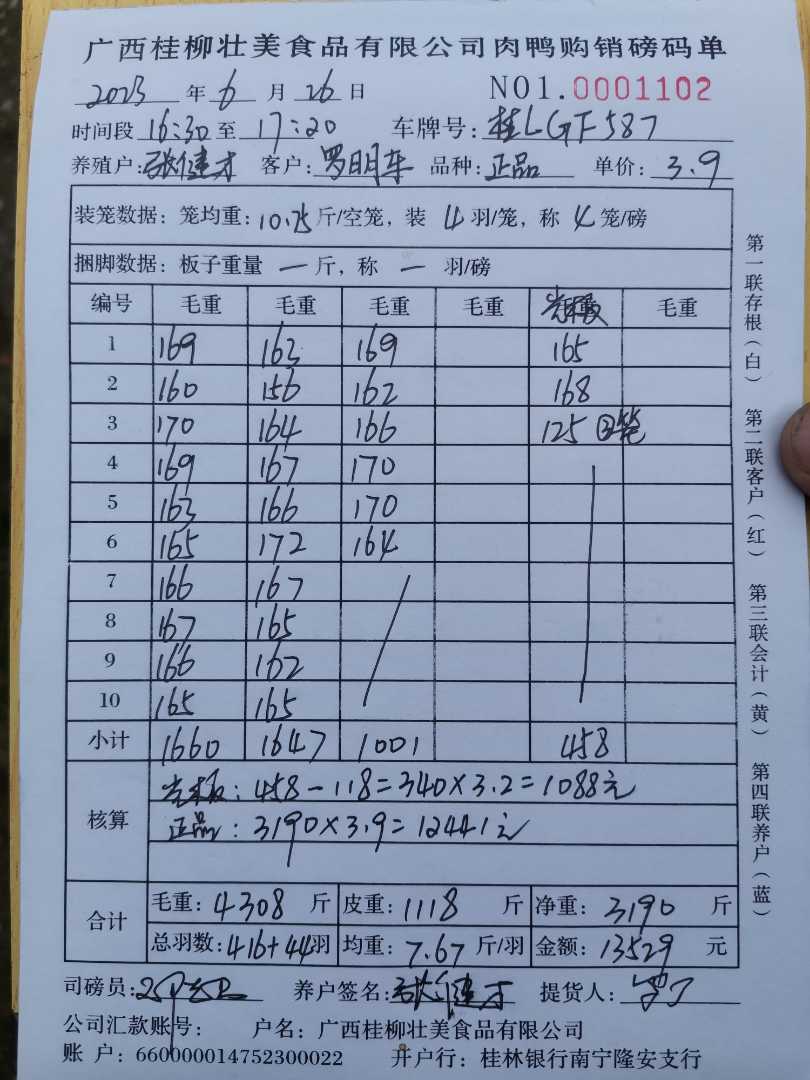 广西桂柳壮美食品有限公司肉鸭购销磅码单
2023 年 6 月 26 日 NO1.0001102
时间段 16:30 至 17:20 车牌号: 桂LGF587
养殖户: 张健才 客户: 罗明车 品种: 正品 单价: 3.9
装笼数据: 笼均重: 10.75 斤/空笼, 装 4 羽/笼, 称 4 笼/磅
捆脚数据: 板子重量 — 斤, 称 — 羽/磅
编号 毛重 毛重 毛重 毛重 毛重
1 169 163 169 165
2 160 156 162 168
3 170 164 166 125 ③笼
4 169 167 170
5 163 166 170
6 165 172 164
7 166 167
8 167 165
9 166 162
10 165 165
小计 1660 1647 1001 458
核算
458-118=340×3.2=1088元
正品: 3190×3.9=12441元
合计
毛重: 4308 斤 皮重: 1118 斤 净重: 3190 斤
总羽数: 416+44羽 均重: 7.67 斤/羽 金额: 13529 元
司磅员: 养户签名: 张健才 提货人:
公司汇款账号: 户名: 广西桂柳壮美食品有限公司
账 户: 660000014752300022 开户行: 桂林银行南宁隆安支行
第一联存根(白) 第二联客户(红) 第三联会计(黄) 第四联养户(蓝)